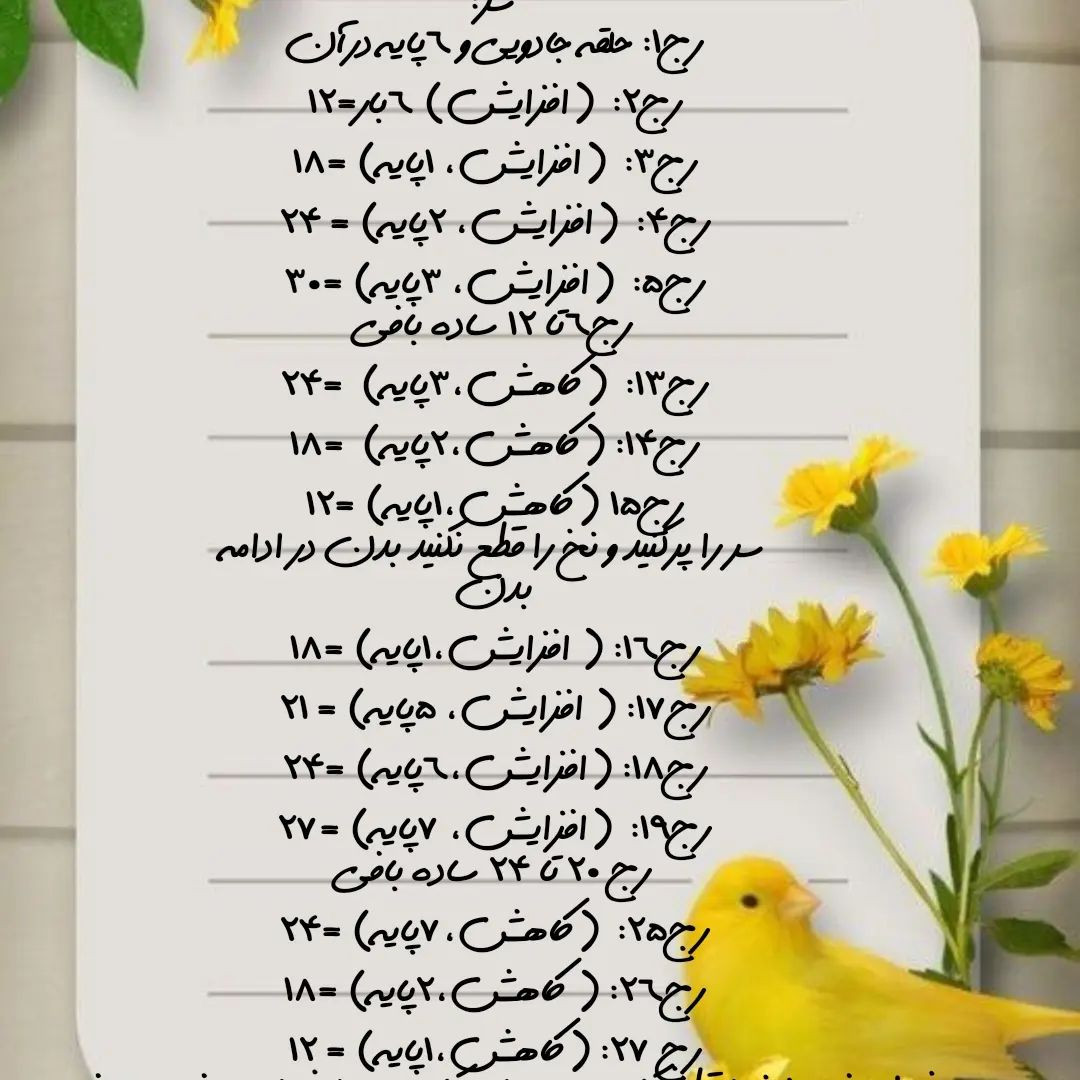 سر:
رج۱: حلقه جادویی و ٦ پایه در آن
رج۲: ( افزایش ) ٦بار=۱۲
رج۳: ( افزایش ، ۱پایه) =۱۸
رج۴: ( افزایش ، ۲پایه) = ۲۴
رج۵: ( افزایش ، ۳پایه) =۳۰
رج٦ تا ۱۲ ساده بافی
رج۱۳: ( کاهش ،۳پایه) =۲۴
رج۱۴: ( کاهش ،۲پایه) =۱۸
رج۱۵ ( کاهش ،۱پایه) =۱۲
سر را پر کنید و نخ را قطع نکنید بدن در ادامه
بدن
رج۱٦: ( افزایش ،۱پایه) =۱۸
رج۱۷: ( افزایش ، ۵پایه) = ۲۱
رج۱۸: ( افزایش ،٦پایه) =۲۴
رج۱۹: ( افزایش ، ۷پایه) =۲۷
رج ۲۰ تا ۲۴ ساده بافی
رج۲۵: ( کاهش ، ۷پایه) =۲۴
رج۲٦: ( کاهش ،۲پایه) =۱۸
رج ۲۷: ( کاهش ،۱پایه) = ۱۲